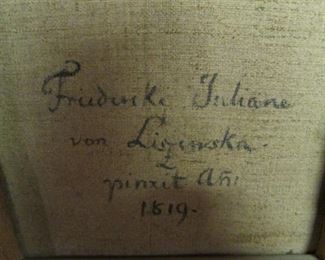 Friederike Juliane
von Lisiewska.
pinxit Añ:
1819.